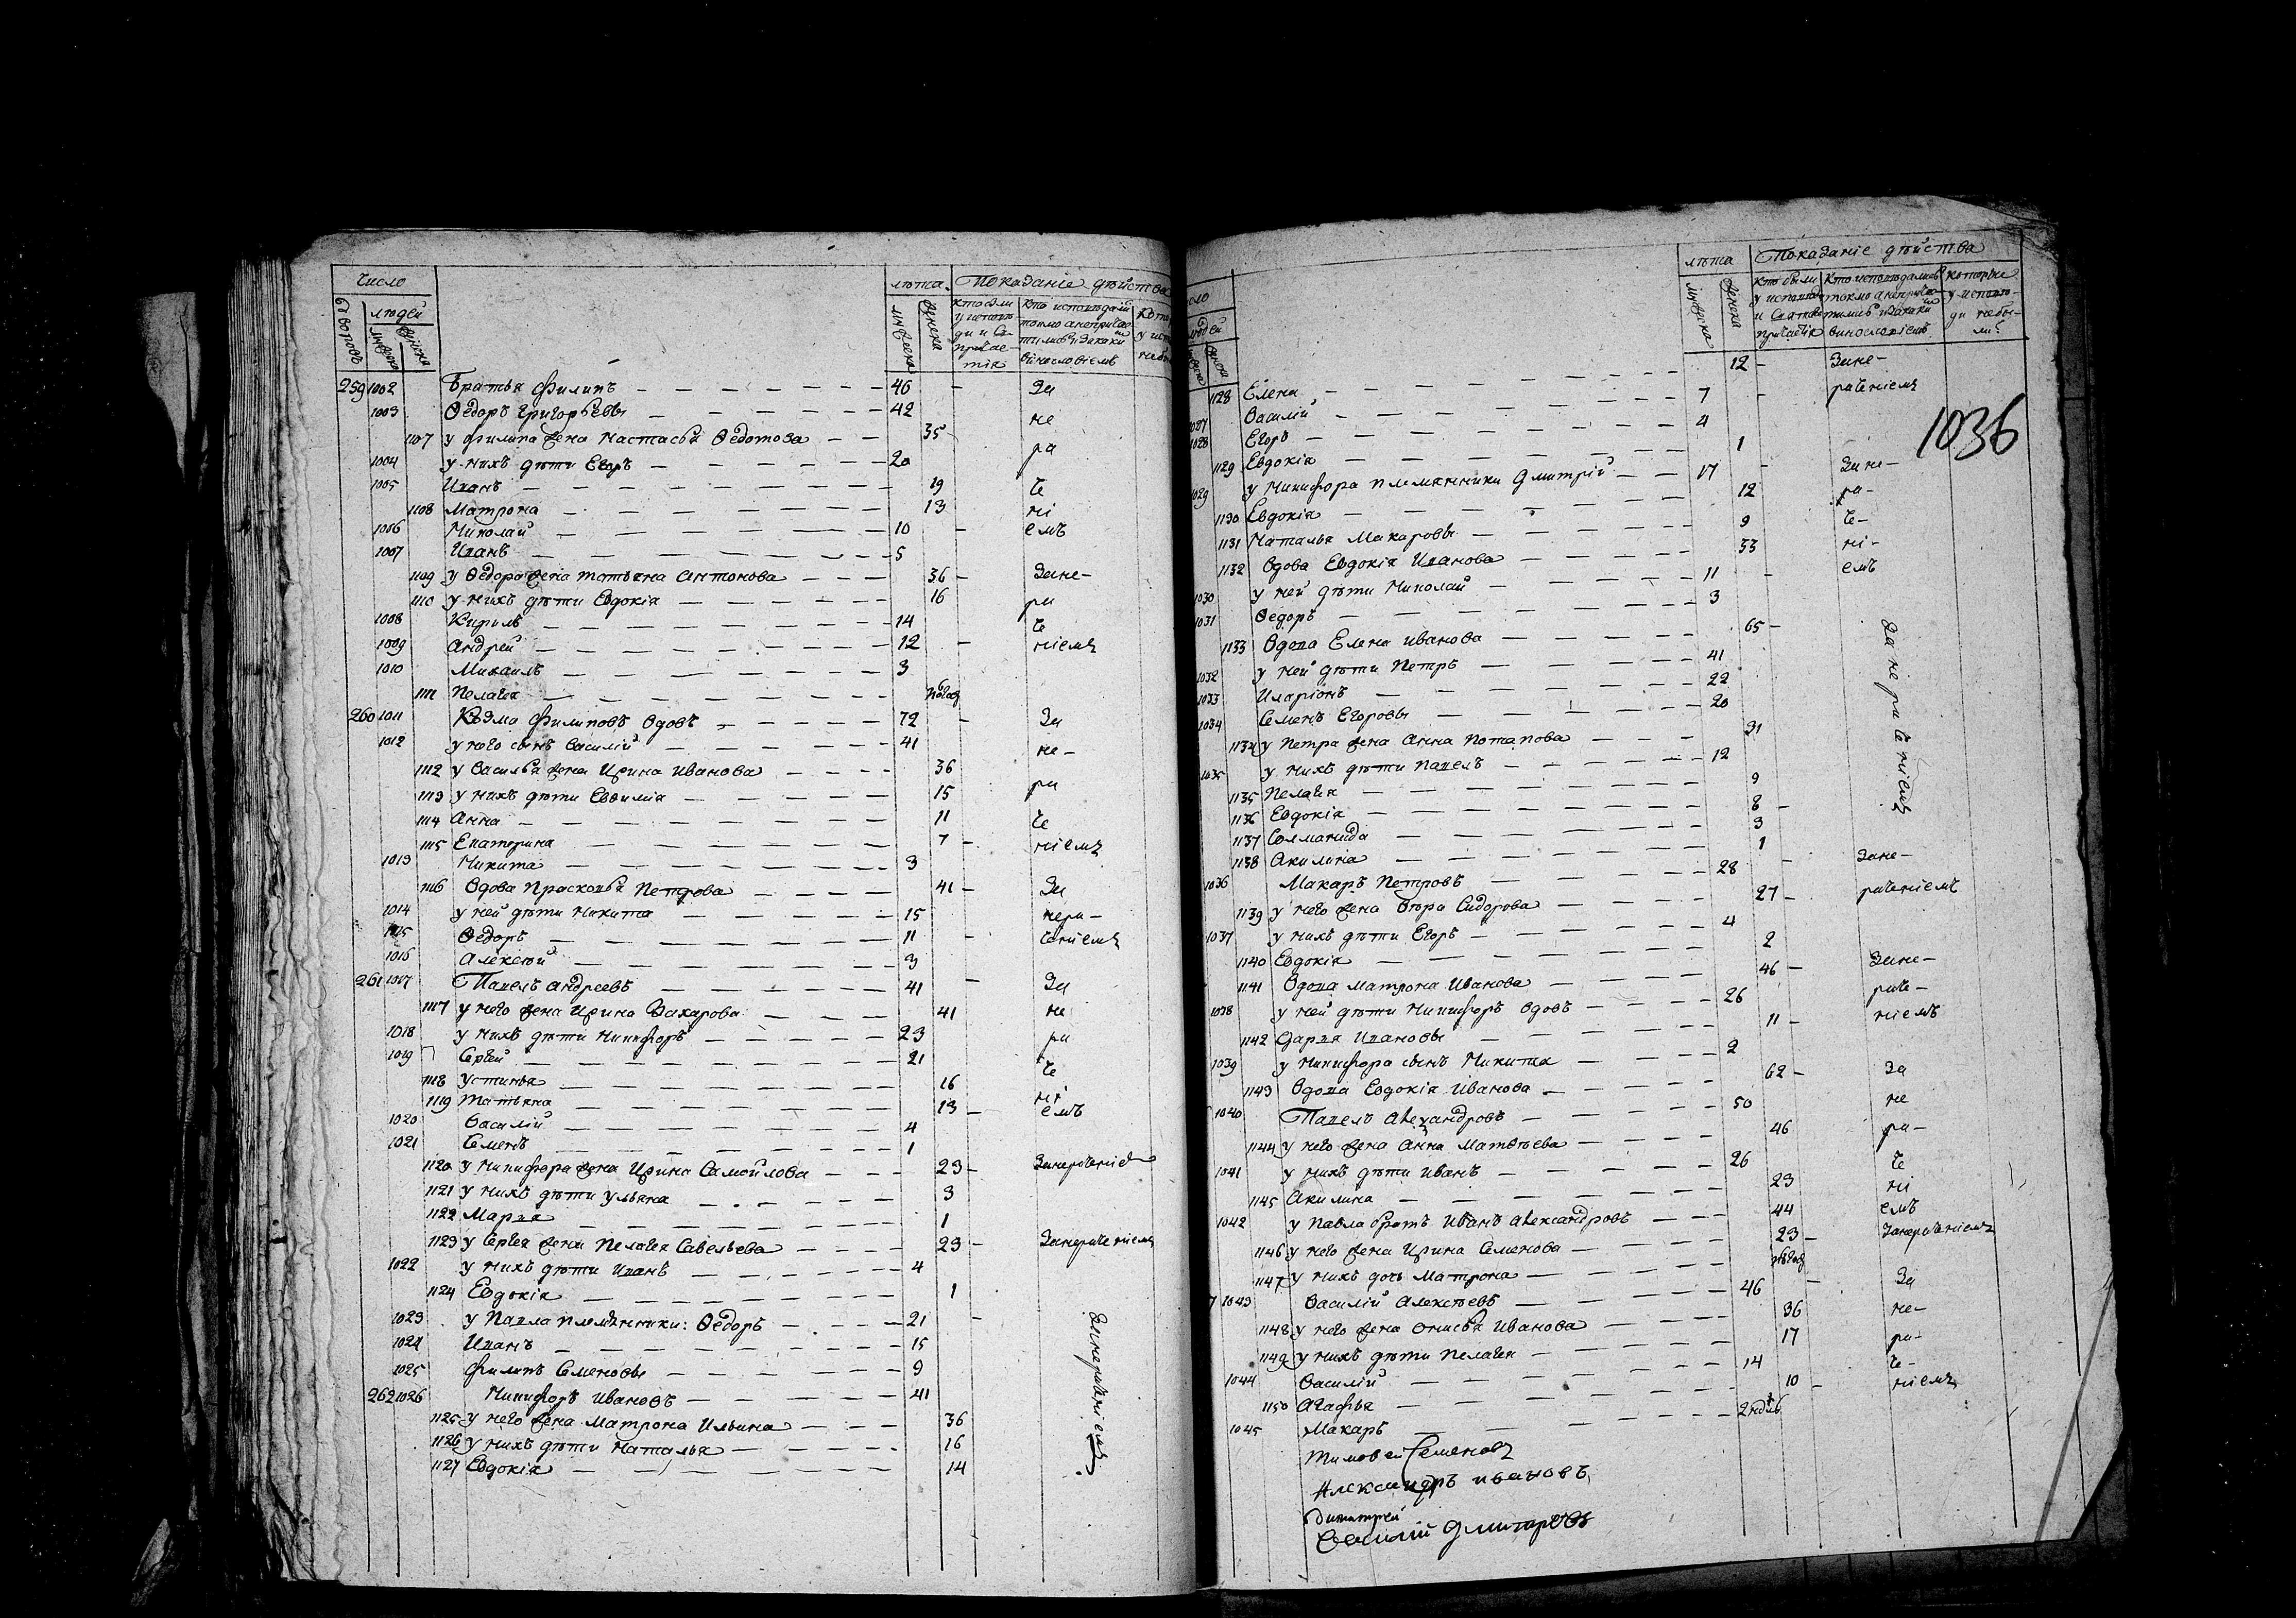 Число лѣта. Показаніе дѣйства
дворовъ людей мужеска женска мужеска женска
259 1002 Братья Филипъ 46 - За
1003 Ѳедоръ Григорьевы 42 не
1107 у Филипа жена Настасья Ѳедотова 35 ра
1004 у нихъ дѣти Егоръ 20
1005 Иванъ 19 че
1108 Матрона 13 ні
1006 Николай 10 - емъ
1007 Иванъ 5
1109 у Ѳедора жена Татьяна Антонова 36 - Зане-
1110 у нихъ дѣти Евдокія 16 ра
1008 Кирилъ 14 че
1009 Андрей 12 - ніемъ
1010 Михаилъ 3
1111 Пелагея
260 1011 Козма Филиповъ вдовъ 72 - За
1012 у него сынъ Василій 41 не-
1112 у Василья жена Ирина Иванова 36 ра
1113 у нихъ дѣти Евѳимія 15
1114 Анна 11 че
1115 Екатерина 7 - ніемъ
1013 Никита 3
1116 Вдова Прасковья Петрова 41 - За
1014 у ней дѣти Никита 15 нера-
1015 Ѳедоръ 11 - ченіемъ
1016 Алексѣй 3
261 1017 Павелъ Андреевъ 41 - За
1117 у него жена Ирина Захарова 41 не
1018 у нихъ дѣти Никифоръ 23 ра
1019 Сергей 21 че
1118 Устинья 16 ні
1119 Татьяна 13 - емъ
1020 Василій 4
1021 Семенъ 1
1120 у Никифора жена Ирина Самойлова 23 - Занераченіе
1121 у нихъ дѣти Ульяна 3
1122 Марья 1
1123 у Сергея жена Пелагея Савельева 23 - Занераченіемъ
1022 у нихъ дѣти Иванъ 4
1124 Евдокія 1
1023 у Павла племянники: Ѳедоръ 21 - Занераченіемъ
1024 Иванъ 15
1025 Филипъ Семеновы 9
262 1026 Никифоръ Ивановъ 41
1125 у него жена Матрона Ильина 36
1126 у нихъ дѣти Наталья 16
1127 Евдокія 14
лѣта Показаніе дѣйства
1036
1128 Елена 12 - Зане-
1027 Василій 7 - раченіемъ
1028 Егоръ 4
1129 Евдокія 1
1029 у Никифора племянники Дмитрій 17 - Зане-
1130 Евдокія 12 ра-
1131 Наталья Макаровы 9 че-
1132 Вдова Евдокія Иванова 33 ні-
1030 у ней дѣти Николай 11 - емъ
1031 Ѳедоръ 3
1133 Вдова Елена Иванова 65 - Занераченіемъ
1032 у ней дѣти Петръ 41
1033 Иларіонъ 22
1034 Семенъ Егоровы 20
1134 у Петра жена Анна Потапова 31
1035 у нихъ дѣти Павелъ 12
1135 Пелагея 9
1136 Евдокія 8 -
1137 Соломанида 3
1138 Акилина 1
1036 Макаръ Петровъ 28 - Зане-
1139 у него жена Вѣра Сидорова 27 - раченіемъ
1037 у нихъ дѣти Егоръ 4
1140 Евдокія 2
1141 Вдова Матрона Иванова 46 - Зане-
1038 у ней дѣти Никифоръ вдовъ 26 раче-
1142 Дарья Ивановы 11 - ніемъ
1039 у Никифора сынъ Никита 2
1143 Вдова Евдокія Иванова 62 - За
1040 Павелъ Александровъ 50 не
1144 у него жена Анна Матвѣева 46 ра-
1041 у нихъ дѣти Иванъ 26 че
1145 Акилина 23 ні
1042 у Павла братъ Иванъ Александровъ 44 емъ
1146 у него жена Ирина Семенова 23 - Занераченіемъ
1147 у нихъ дочь Матрона
1043 Василій Алексѣевъ 46 - За
1148 у него жена Онисья Иванова 36 не-
1149 у нихъ дѣти Пелагея 17 ра-
1044 Василій 14 че-
1150 Агафья 10 - ніемъ
1045 Макаръ
Тимоѳей Семеновъ
Александръ ивановъ
Димитрей
Василій Дмитревъ